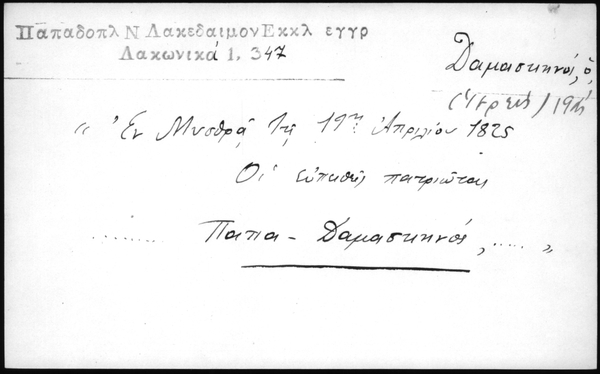 Παπαδοπλ Ν ΛακεδαιμονΕκκλ εγγρ
Λακωνικά 1, 347
Δαμασκηνός, ὁ,
"Ἐν Μυσθρᾷ τῇ 19ῃ Ἀπριλίου 1825
Οἱ εὐπειθεῖς πατριῶται
......... Παπα - Δαμασκηνός, ..... "